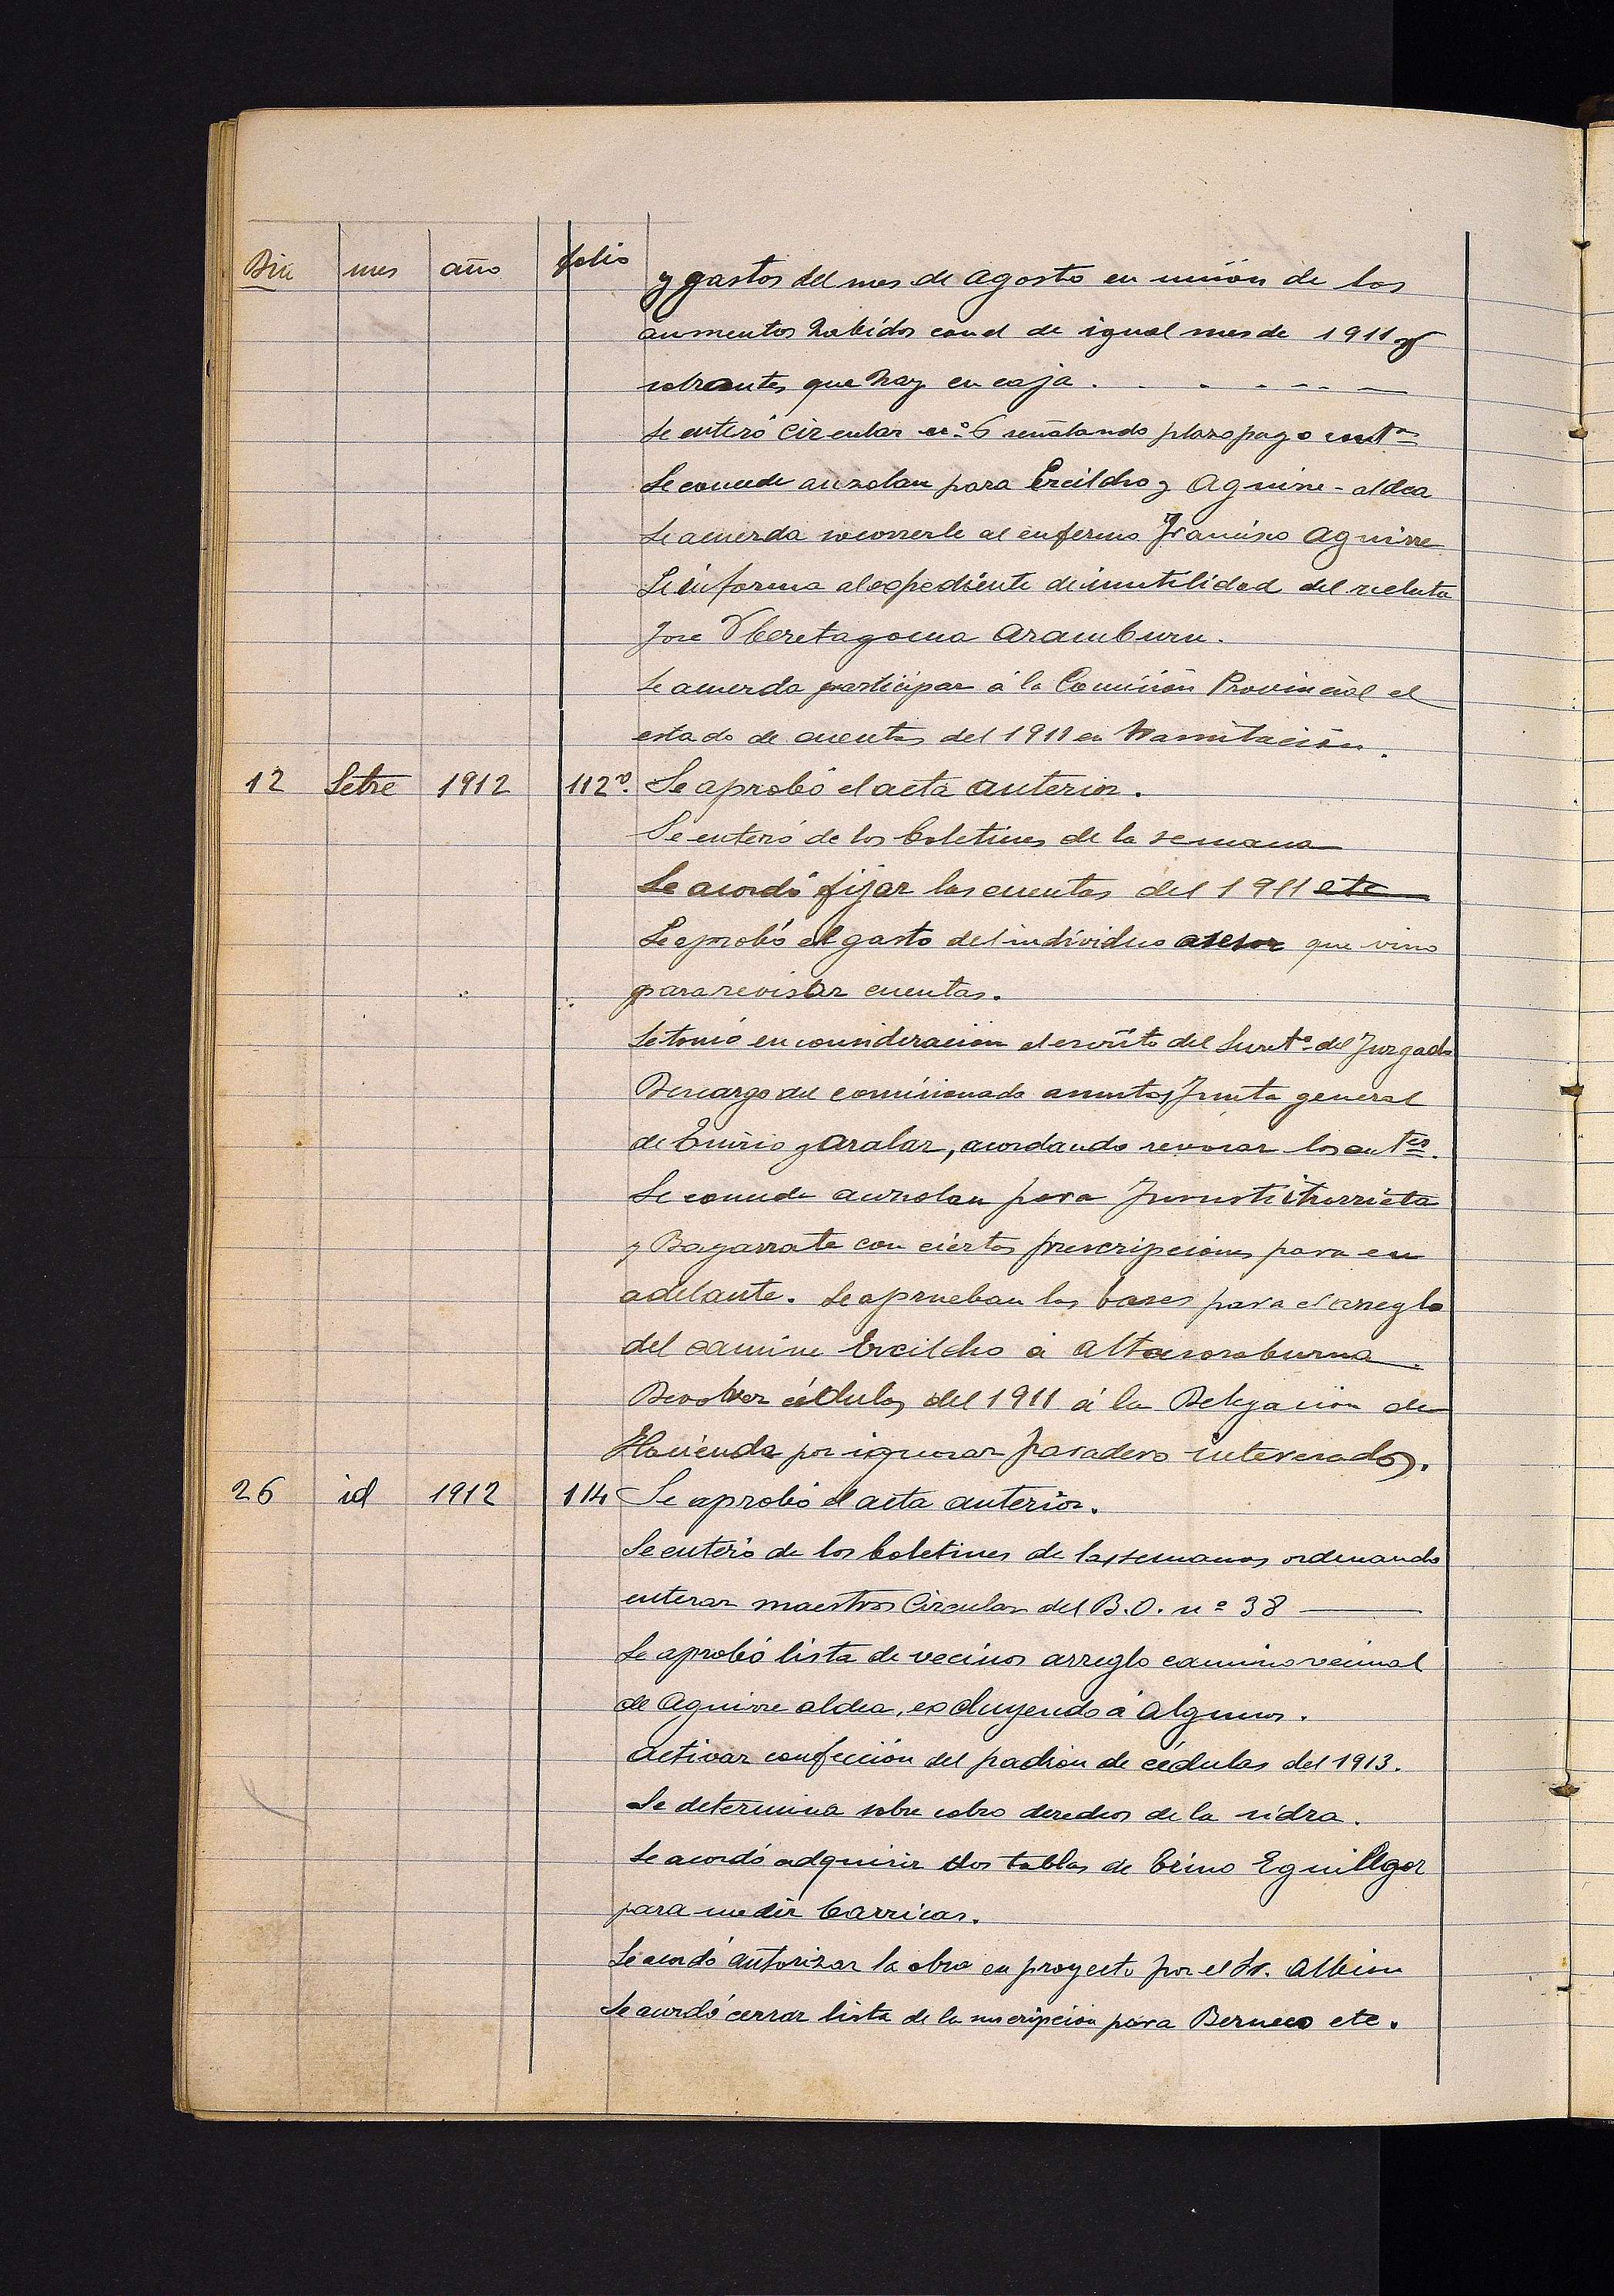 Dia mes año folio
y gastos del mes de agosto en unión de los
aumentos habidos con el de igual mes de 1911 y
sobrantes que hay en caja. - - - -
Se enteró circular nº 6 señalando plazo pago
Se concede auzolan para Ercilcho y Aguirre-aldea
Se acuerda socorrerle al enfermo Francisco Aguirre
Se informa al expediente de inutilidad del recluta
José Aramburu.
Se acuerda participar á la Comisión Provincial el
estado de cuentas del 1911 en tramitación.
12 Setre 1912 112vº. Se aprobó el acta anterior.
Se enteró de los boletines de la semana
Se acordó fijar las cuentas del 1911 etc
Se aprobó el gasto del individuo asesor que vino
para revisar cuentas.
Se tomó en consideración el escrito del del Juzgado
Descargo del comisionado asuntos Junta general
de Enirio y Aralar, acordando
Se concede auzolan para
y Bagarrate con ciertas prescripciones para en
adelante. Se aprueban las bases para el arreglo
del camino Ercilcho á
Devolver cédulas del 1911 á la Delegación de
Hacienda por ignorar paradero interesados.
26 id 1912 114 Se aprobó el acta anterior.
Se enteró de los boletines de las semanas ordenando
enterar maestros Circular del B.O. nº 38
Se aprobó lista de vecinos arreglo camino vecinal
de Aguirre aldea, excluyendo á algunos.
Activar confección del padrón de cédulas del 1913.
Se determina sobre cobro derechos de la sidra.
Se acordó adquirir dos tablas de
para medir barricas.
Se acordó autorizar la obra en proyecto por el Sr. Albisu
Se acordó cerrar lista de la suscripción para Bermeo etc.